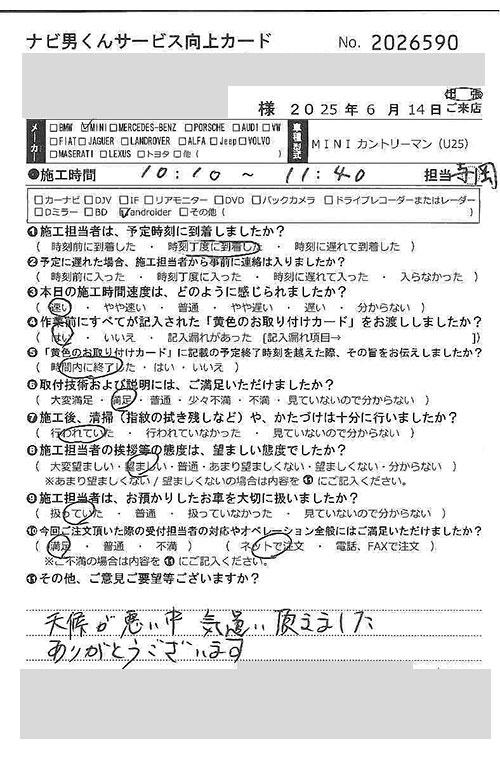 ナビ男くんサービス向上カード No. 2026590
出張
様 2025年 6月 14日 ご来店
メーカー □BMW ☑MINI □MERCEDES-BENZ □PORSCHE □AUDI □VW
□FIAT □JAGUER □LANDROVER □ALFA □Jeep □VOLVO
□MASERATI □LEXUS □トヨタ □他 (
車種型式 MINI カントリーマン (U25)
●施工時間 10:10 ～ 11:40 担当 寺岡
□カーナビ □DJV □IF □リアモニター □DVD □バックカメラ □ドライブレコーダーまたはレーダー
□Dミラー □BD ☑androider □その他 ( )
❶施工担当者は、予定時刻に到着しましたか?
( 時刻前に到着した ・ 時刻丁度に到着した ・ 時刻に遅れて到着した )
❷予定に遅れた場合、施工担当者から事前に連絡は入りましたか?
( 時刻前に入った ・ 時刻丁度に入った ・ 時刻に遅れて入った ・ 入らなかった )
❸本日の施工時間速度は、どのように感じられましたか?
( 速い ・ やや速い ・ 普通 ・ やや遅い ・ 遅い ・ 分からない )
❹作業前にすべてが記入された「黄色のお取り付けカード」をお渡ししましたか?
( はい ・ いいえ ・ 記入漏れがあった [記入漏れ項目→ ] )
❺「黄色のお取り付けカード」に記載の予定終了時刻を越えた際、その旨をお伝えしましたか?
( 時間内に終了した ・ はい ・ いいえ )
❻取付技術および説明には、ご満足いただけましたか?
( 大変満足 ・ 満足 ・ 普通 ・ 少々不満 ・ 不満 ・ 見ていないので分からない )
❼施工後、清掃(指紋の拭き残しなど)や、かたづけは十分に行いましたか?
( 行われていた ・ 行われていなかった ・ 見ていないので分からない )
❽施工担当者の挨拶等の態度は、望ましい態度でしたか?
( 大変望ましい ・ 望ましい ・ 普通 ・ あまり望ましくない ・ 望ましくない ・ 分からない )
※あまり望ましくない / 望ましくないの場合は内容を⓫にご記入ください。
❾施工担当者は、お預かりしたお車を大切に扱いましたか?
( 扱っていた ・ 普通 ・ 扱っていなかった ・ 見ていないので分からない )
❿今回ご注文頂いた際の受付担当者の対応やオペレーション全般にはご満足いただけましたか?
( 満足 ・ 普通 ・ 不満 ) ( ネットで注文 ・ 電話、FAXで注文 )
※ご不満の場合は内容を⓫にご記入ください。
⓫その他、ご意見ご要望等ございますか?
天候が悪い中 気遣い頂きました
ありがとうございます